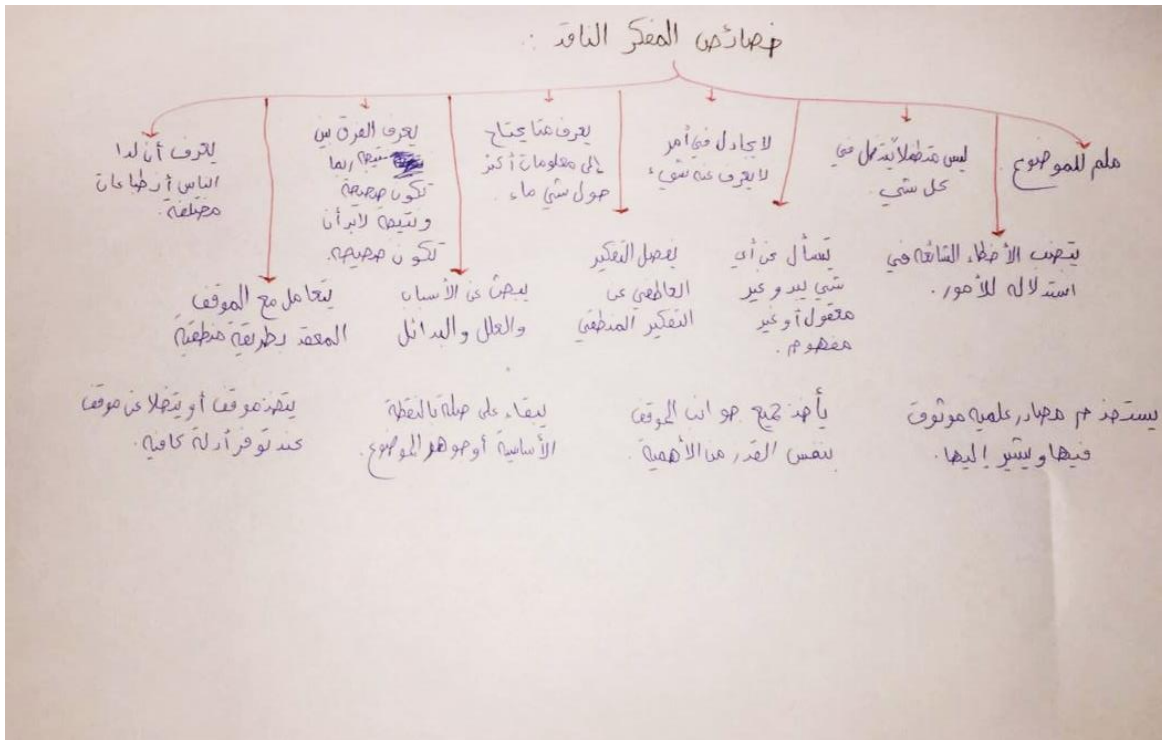 خصائص المفكر الناقد :
ملم للموضوع.
ليس متطفلاً يتدخل في
كل شي.
لا يجادل في أمر
لا يعرف عنه شيء
يعرف متا يحتاج
إلى معلومات أكثر
حول شي ماء.
يعرف الفرق بين
نتيجة ربما
تكون صحيحة
ونتيجة لابد أن
تكون صحيحة.
يعترف أن لدا
الناس أن طباعات
مختلفة.
يتجنب الأخطاء الشائعه في
استدلاله للأمور.
يسأل عن أي
شي يبدو غير
معقول أو غير
مفهوم.
يفصل التفكير
العاطفي عن
التفكير المنطقي
يبحث عن الأسباب
والعلل والبدائل
يتعامل مع الموقف
المعقد بطريقة منطقية
يستخدم مصادر علميه موثوق
فيها ويشير إليها.
يأخذ جميع جوانب الموقف
بنفس القدر من الأهمية.
يبقاء على صلة بالنقطة
الأساسية أو جوهر الموضوع.
يتخذ موقف أو يتخلا عن موقف
عند توفر أدلة كافيه.